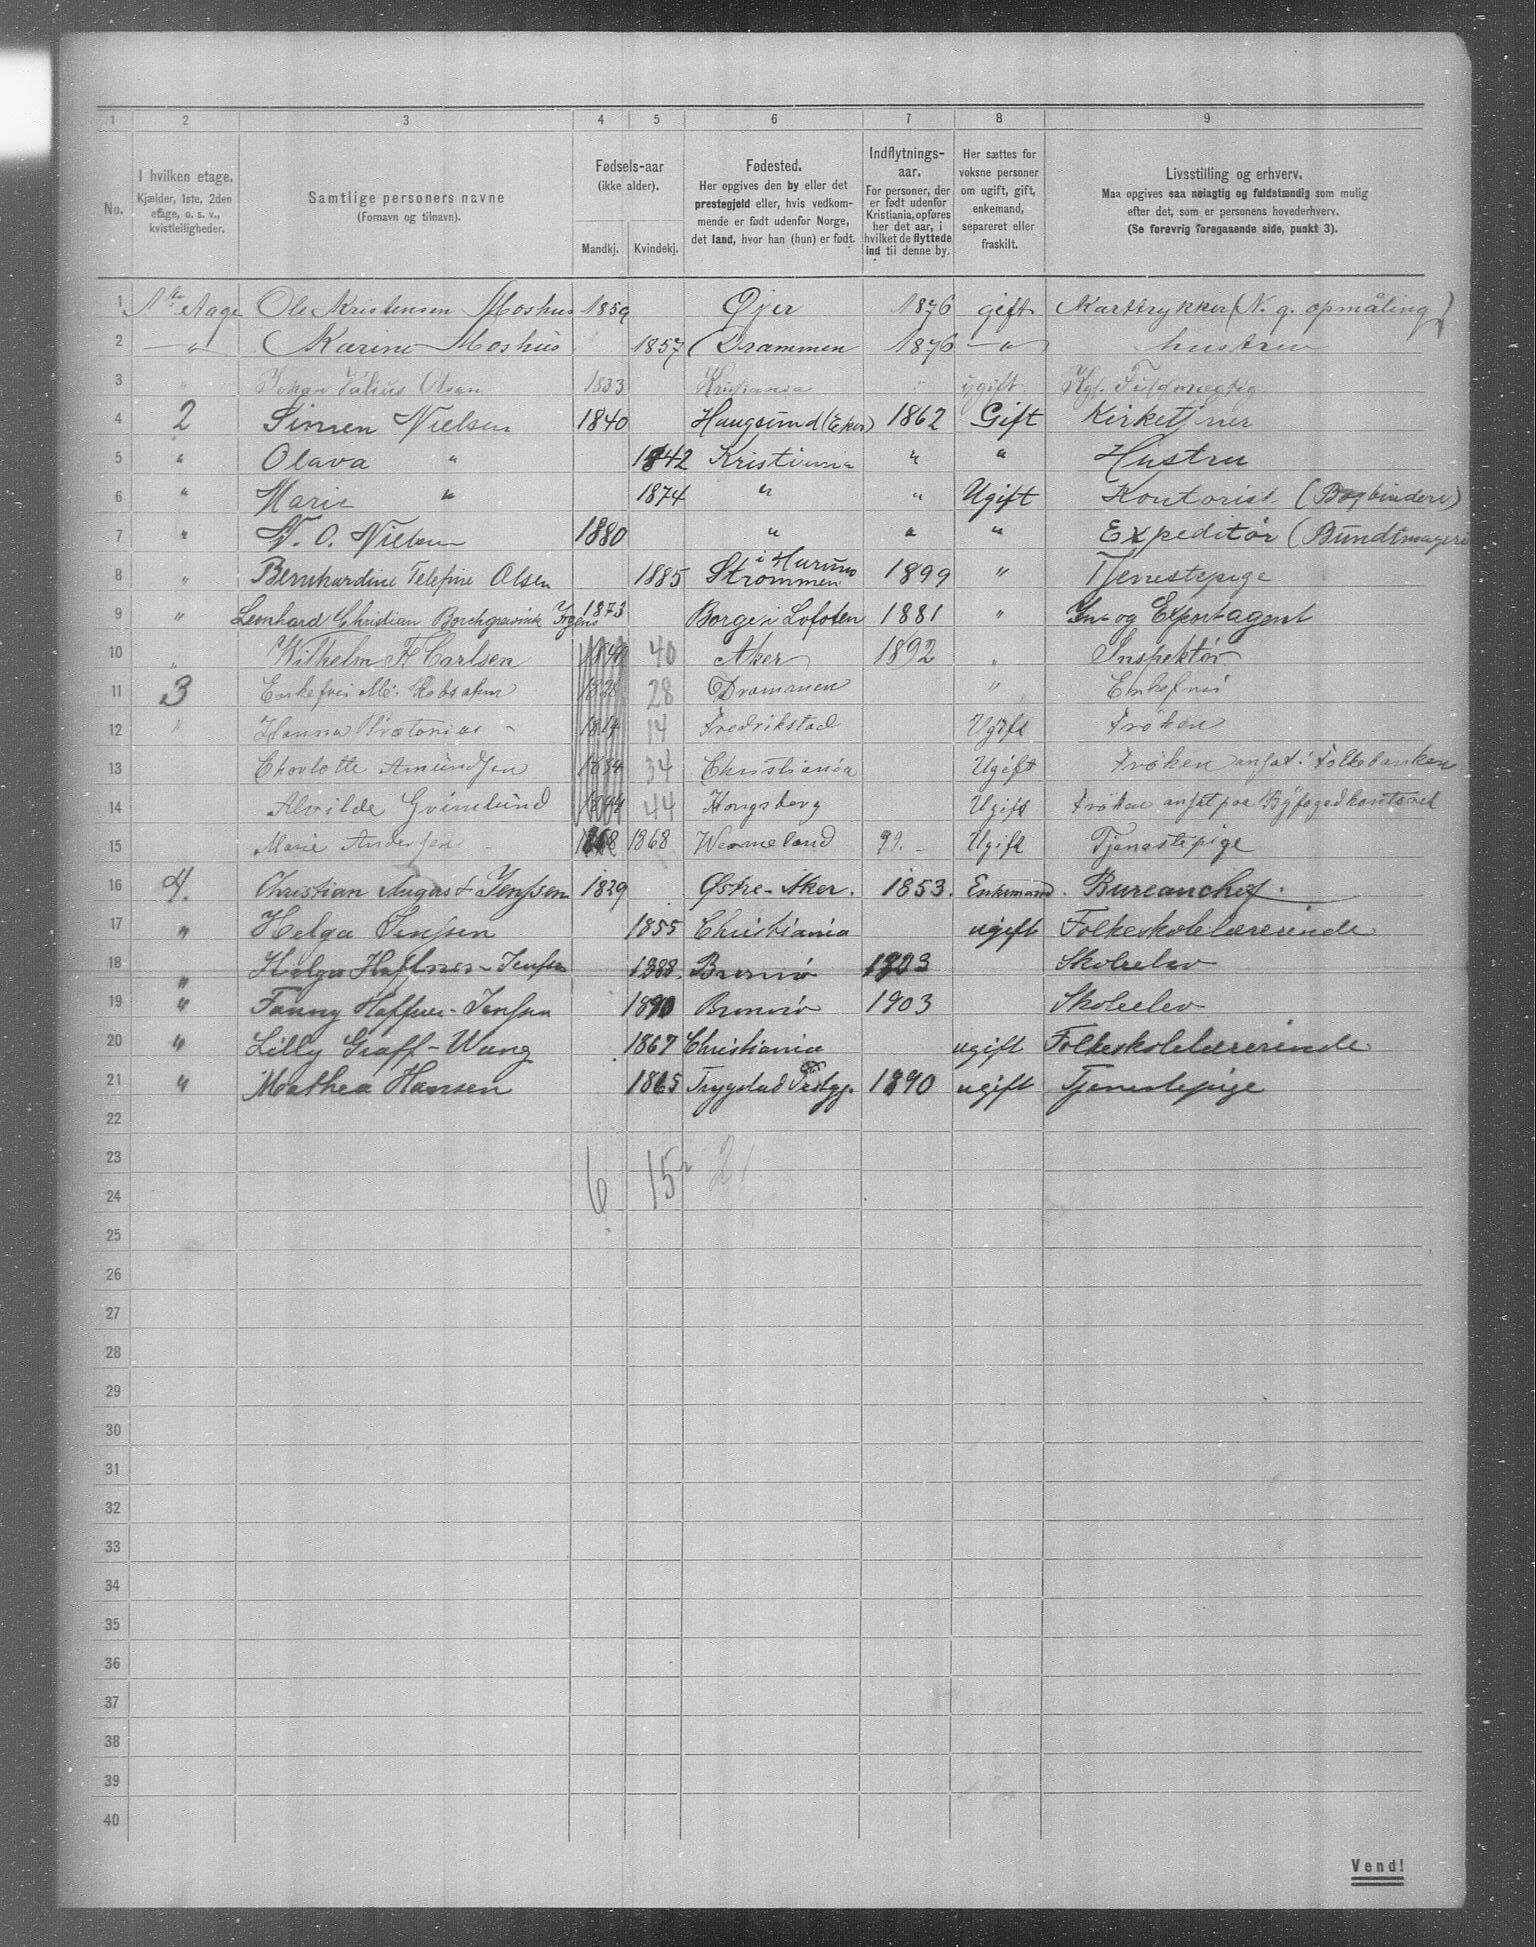 1 2 3 4 5 6 7 8 9
No.
I hvilken etage.
Kjælder, 1ste, 2den
etage, o. s. v.,
kvistleiligheder.
Samtlige personers navne
(Fornavn og tilnavn).
Fødsels-aar
(ikke alder).
Mandkj. Kvindekj.
Fødested.
Her opgives den by eller det
prestegjeld eller, hvis vedkom-
mende er født udenfor Norge,
det land, hvor han (hun) er født.
Indflytnings-
aar.
For personer, der
er født udenfor
Kristiania, opføres
her det aar, i
hvilket de flyttede
ind til denne by.
Her sættes for
voksne personer
om ugift, gift,
enkemand,
separeret eller
fraskilt.
Livsstilling og erhverv.
Maa opgives saa nøiagtig og fuldstændig som mulig
efter det, som er personens hovederhverv.
(Se forøvrig foregaaende side, punkt 3).
1 1ste etage Ole Kristensen Moshus 1859 Øjer 1876 gift Karttrykker (N. g. opmåling)
2 " Karine Moshus 1857 Drammen 1876 " hustru
3 " Johan Julius Olsen 1833 Kristiania " ugift Kgl. Fuldmægtig
4 2 Simen Nielsen 1840 Haugsund (Eker) 1862 Gift Kirketjner
5 " Olava " 1842 Kristiania " " Hustru
6 " Marie " 1874 " " Ugift Kontorist (Bogbinderi)
7 " N. O. Nielsen 1880 " " " Expeditør (Bundtmageri
8 " Bernhardine Telefine Olsen 1885 Strømmen i Hurum 1899 " Tjenestepige
9 " Leonhard Christian Borchgrevink 1873 Borge i Lofoten 1881 " In- og Exportagent
10 " Wilhelm F Carlsen 1840 40 Aker 1892 " Inspektør
11 3 Enkefru M. Robsahm 1828 28 Drammen " Enkefru
12 " Hanna Prætorius 1814 14 Fredrikstad Ugift Frøken
13 Charlotte Amundsen 1834 34 Christiania Ugift Frøken ansat i Folkebanken
14 Alvilde Grimelund 1844 44 Kongsberg Ugift Frøken ansat paa Byfogedkontoret
15 Marie Andersen 1868 1868 Wermeland 99. Ugift Tjenestepige
16 4. Christian August Jenssen 1829 Østre-Aker. 1853. Enkemand. Bureauchef.
17 " Helga Jenssen 1855 Christiania ugift Folkeskolelærerinde
18 " Helga Haffner-Jenssen 1888. Brunø 1903 Skoleelev
19 " Fanny Haffner-Jenssen 1890 Brunø 1903 Skoleelev
20 " Lilly Graff-Wang 1867 Christiania ugift Folkeskolelærerinde
21 " Mathea Hansen 1865 Trygstad Prstgj. 1890 ugift Tjenestepige
22
23
6 15 21
24
25
26
27
28
29
30
31
32
33
34
35
36
37
38
39
40
Vend!